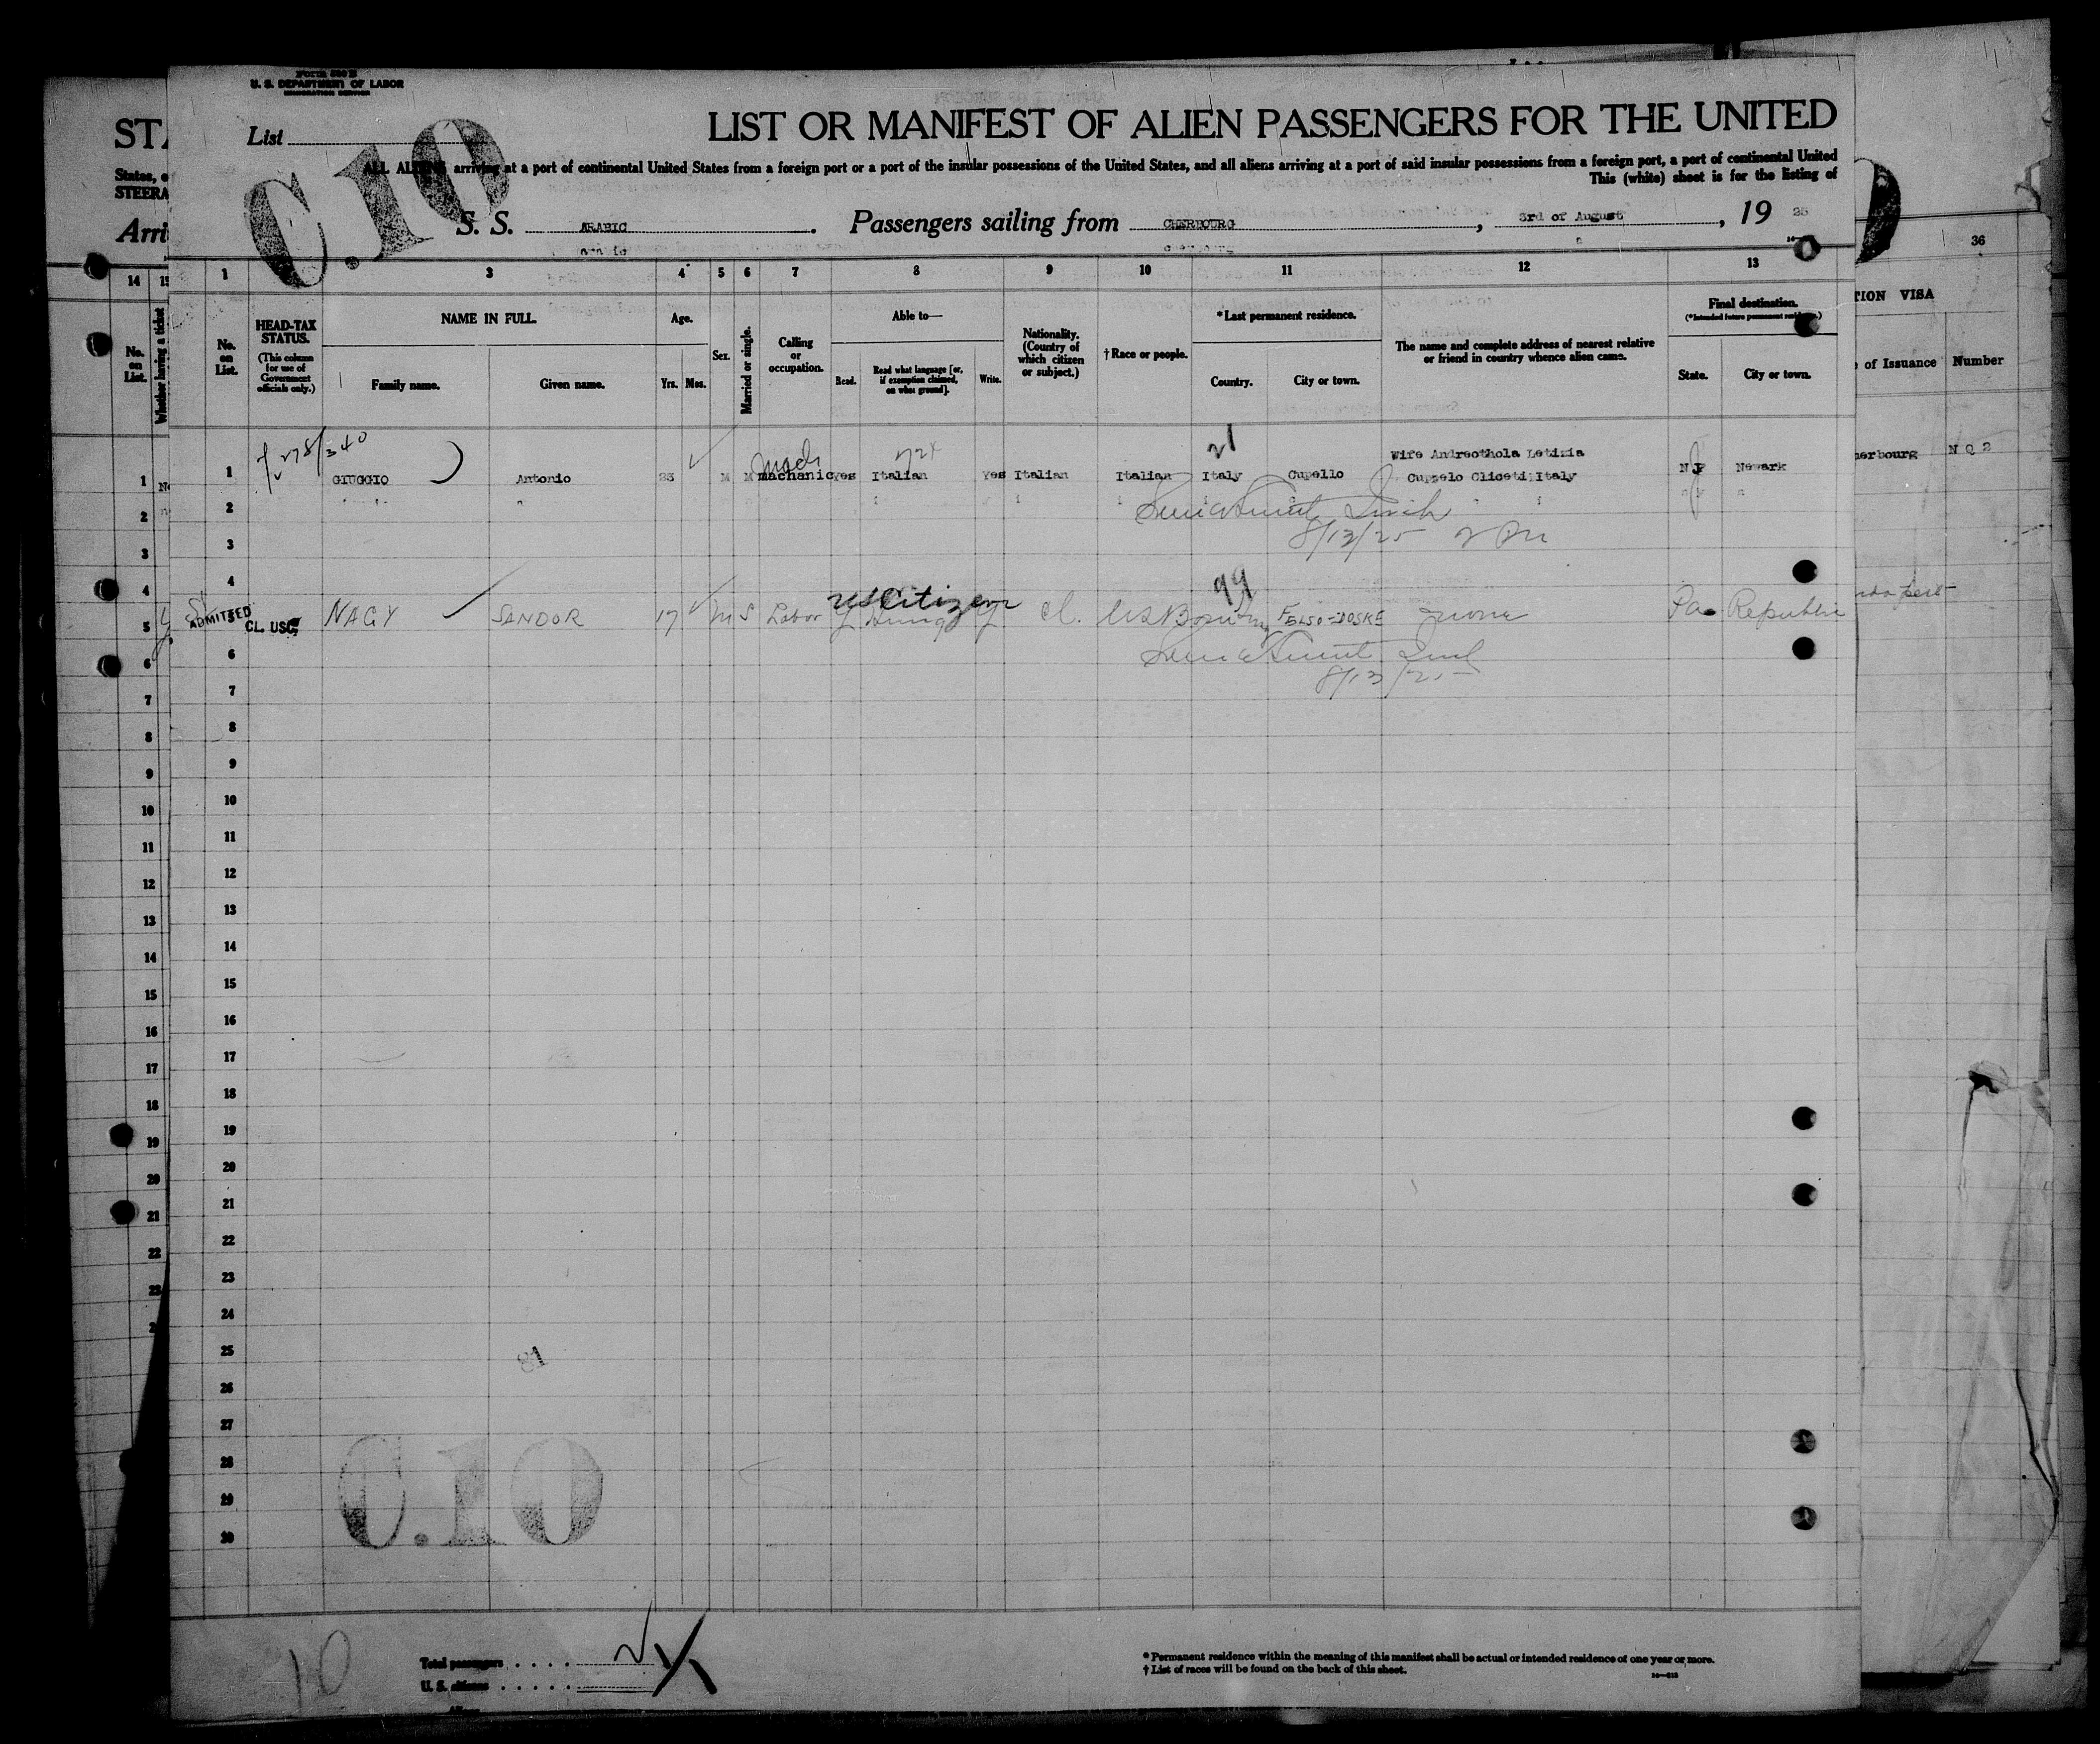 Form 500 B
U. S. DEPARTMENT OF LABOR
IMMIGRATION SERVICE
STA
List
LIST OR MANIFEST OF ALIEN PASSENGERS FOR THE UNITED
C.10
States, o
STEERA
ALL ALIENS arriving at a port of continental United States from a foreign port or a port of the insular possessions of the United States, and all aliens arriving at a port of said insular possessions from a foreign port, a port of continental United
This (white) sheet is for the listing of
Arri
S. S. ARABIC. Passengers sailing from CHERBOURG, 3rd of August, 19 25
14 15 1 3 4 5 6 7 8 9 10 11 12 13 36
No. on List.
Whether having a ticket
No. on List.
HEAD-TAX STATUS.
(This column for use of Government officials only.)
NAME IN FULL.
Family name.
Given name.
Age.
Yrs. Mos.
Sex.
Married or single.
Calling or occupation.
Able to—
Read.
Read what language [or, if exemption claimed, on what ground].
Write.
Nationality. (Country of which citizen or subject.)
†Race or people.
*Last permanent residence.
Country.
City or town.
The name and complete address of nearest relative or friend in country whence alien came.
Final destination.
(*Intended future permanent residence.)
State.
City or town.
TION VISA
of Issuance
Number
278/340
21
mach
Wife Andreothola Letizia
1 GIUGGIO Antonio 23 M M machanic yes Italian Yes Italian Italian Italy Cupello Cupzelo Cliceti Italy N J Newark
herbourg N Q 2
2
8/13/25
3
4
99
US Citizen
5 ADMITTED CL. USC. NAGY SANDOR 17 M S Labor Y Y U.S. Born FELSO-DOSKE none Pa. Republic
6
8/13/25
7
8
9
10
11
12
13
14
15
16
17
18
19
20
21
22
23
24
25
81
26
27
28
29
30
C.10
10
Total passengers
U. S. citizens
Aliens
* Permanent residence within the meaning of this manifest shall be actual or intended residence of one year or more.
† List of races will be found on the back of this sheet.